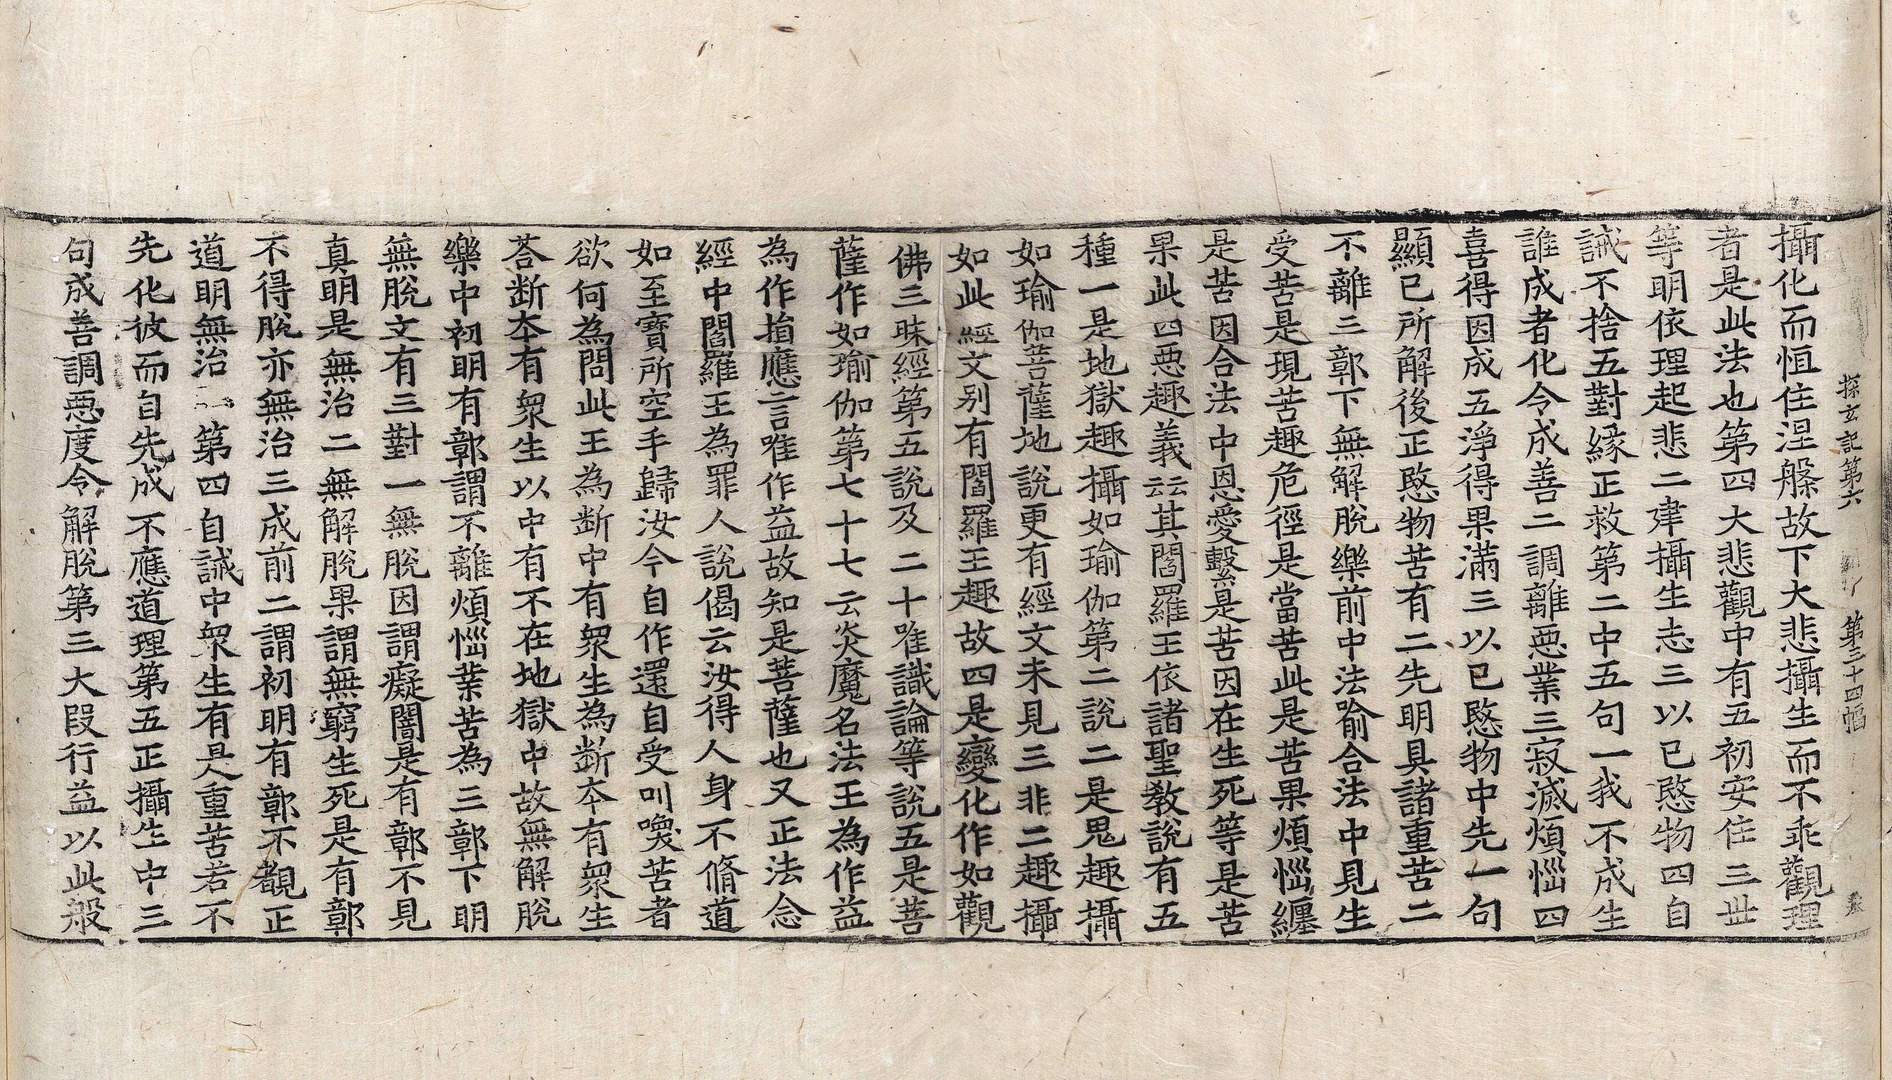 探玄記第六 第三十四幅
攝化而恒住涅槃故下大悲攝生而不乖觀理
者是此法也第四大悲觀中有五初安住三世
等明依理起悲二建攝生志三以已愍物四自
誡不捨五對緣正救第二中五句一我不成生
誰成者化令成善二調離惡業三寂滅煩惱四
喜得因成五淨得果滿三以已愍物中先一句
顯已所解後正愍物苦有二先明具諸重苦二
不離三鄣下無解脫樂前中法喻合法中見生
受苦是現苦趣危徑是當苦此是苦果煩惱纏
是苦因合法中恩愛繫是苦因在生死等是苦
果此四惡趣義云云其閻羅王依諸聖教說有五
種一是地獄趣攝如瑜伽第二說二是鬼趣攝
如瑜伽菩薩地說更有經文未見三非二趣攝
如此經文別有閻羅王趣故四是變化作如觀
佛三昧經第五說及二十唯識論等說五是菩
薩作如瑜伽第七十七云炎魔名法王為作益
為作損應言唯作益故知是菩薩也又正法念
經中閻羅王為罪人說偈云汝得人身不脩道
如至寶所空手歸汝今自作還自受叫喚苦者
欲何為問此王為斷中有眾生為斷本有眾生
荅斷本有眾生以中有不在地獄中故無解脫
樂中初明有鄣謂不離煩惱業苦為三鄣下明
無脫文有三對一無脫因謂癡闇是有鄣不見
真明是無治二無解脫果謂無窮生死是有鄣
不得脫亦無治三成前二謂初明有鄣不覩正
道明無治二第四自誡中眾生有是重苦若不
先化彼而自先成不應道理第五正攝生中三
句成善調惡度令解脫第三大段行益以此般